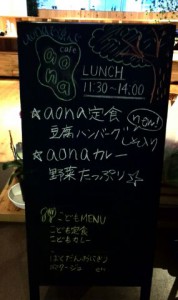 cafe
aona
LUNCH
11:30~14:00
☆aona定食
豆腐ハンバーグ
☆aonaカレー
野菜たっぷり
こどもMENU
こども定食
こどもカレー